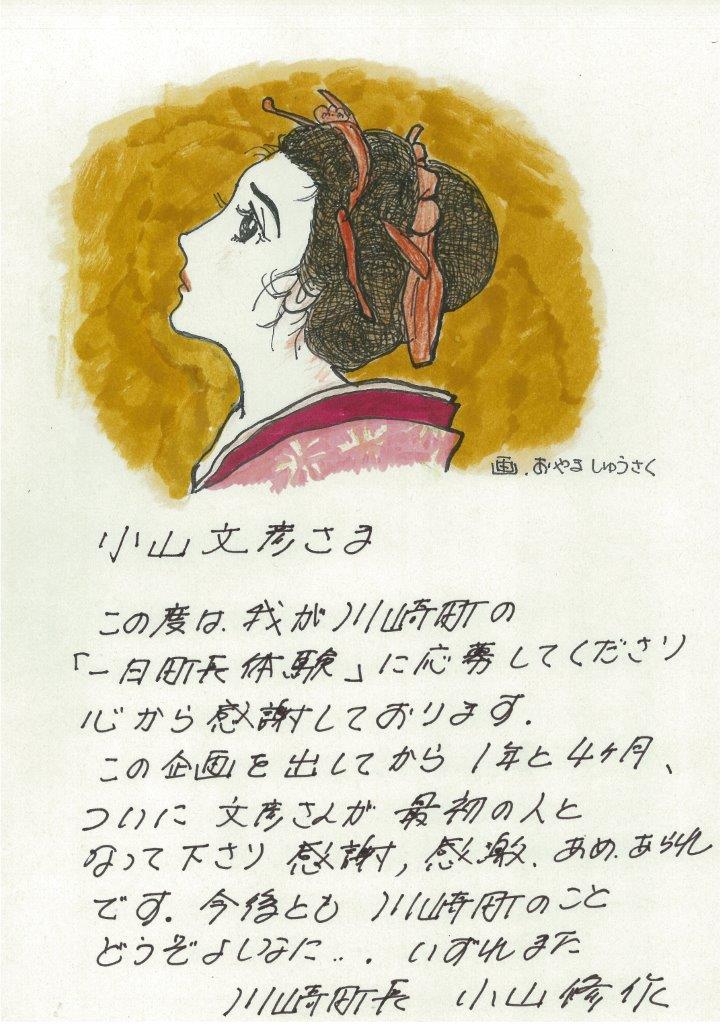 画.おやましゅうさく
小山文彦さま
この度は、我が川崎町の
「一日町長体験」に応募してくださり
心から感謝しております.
この企画を出してから1年と4ヶ月、
ついに文彦さんが最初の人と
なって下さり感謝,感激、あめ、あられ
です.今後とも川崎町のこと
どうぞよしなに...いずれまた
川崎町長 小山修作